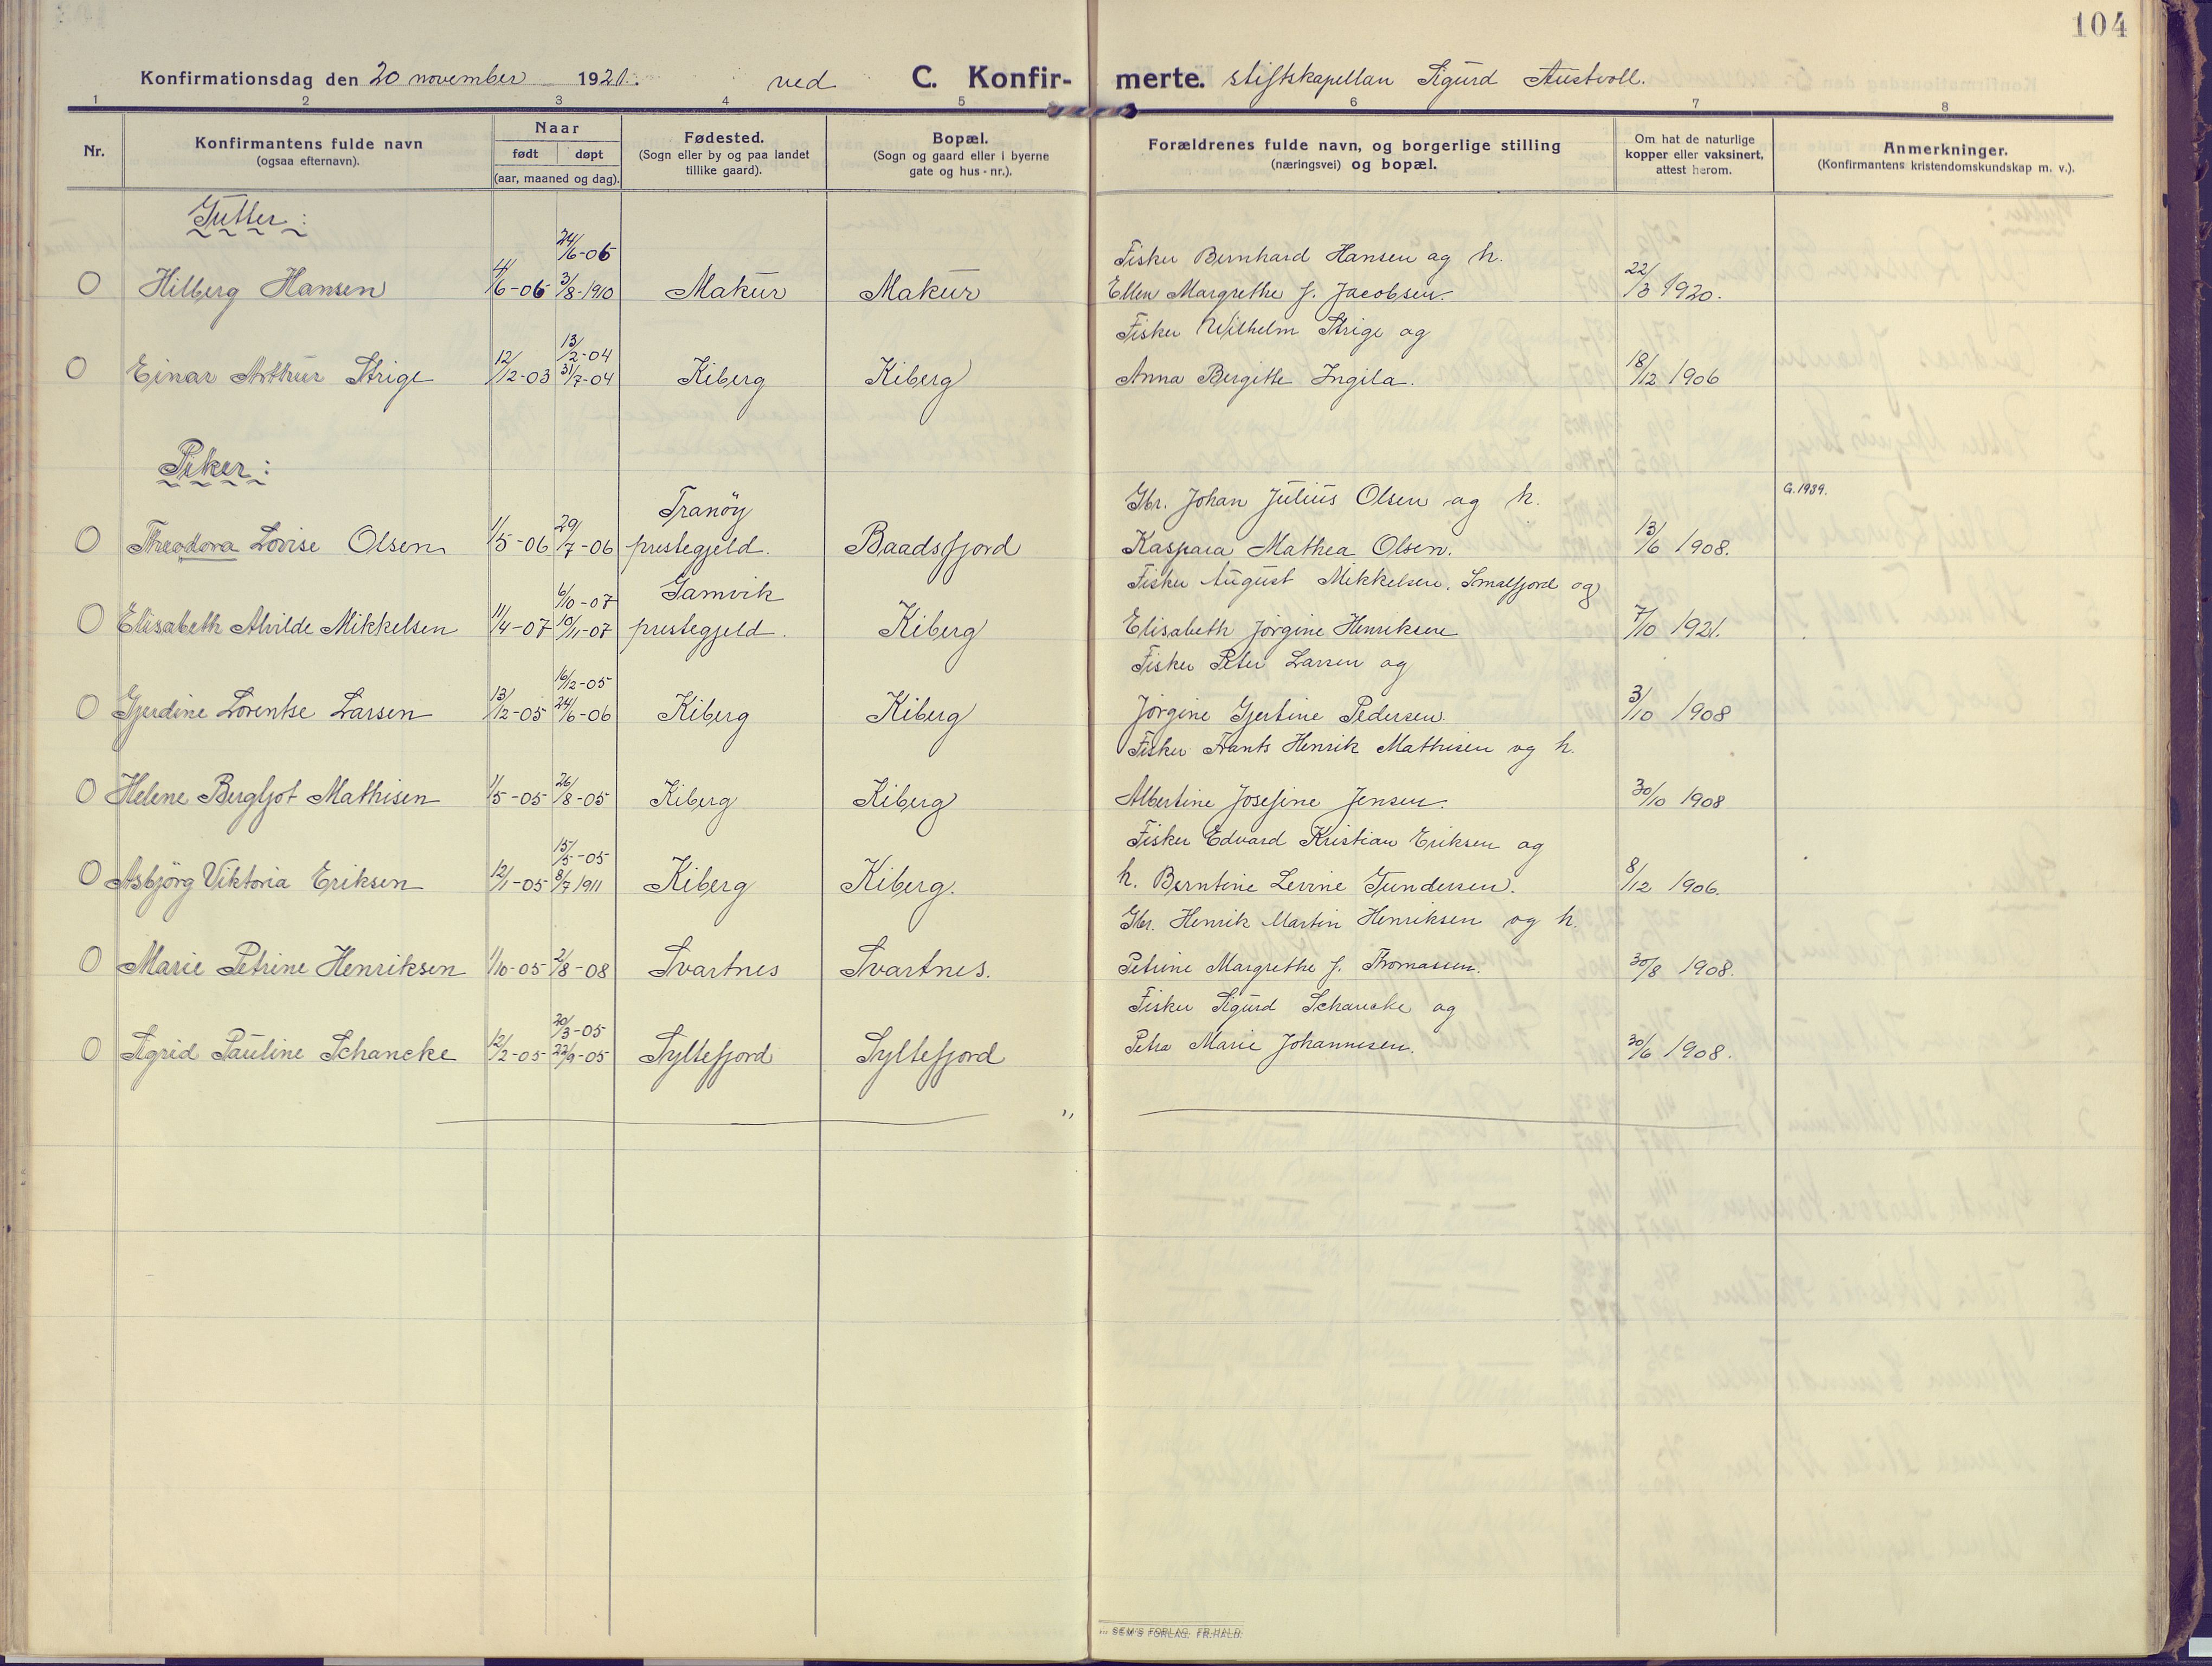 104
Konfirmationsdag den 20 november 1921. ved C. Konfir- merte. stiftskapellan Sigurd Austvoll.
1 2 3 4 5 6 7 8
Nr.
Konfirmantens fulde navn
(ogsaa efternavn).
Naar
født døpt
(aar, maaned og dag).
Fødested.
(Sogn eller by og paa landet
tillike gaard).
Bopæl.
(Sogn og gaard eller i byerne
gate og hus-nr.).
Forældrenes fulde navn, og borgerlige stilling
(næringsvei) og bopæl.
Om hat de naturlige
kopper eller vaksinert,
attest herom.
Anmerkninger.
(Konfirmantens kristendomskundskap m. v.).
Gutter:
24/6-06 Fisker Bernhard Hansen og h.
O Hilberg Hansen 4/6-06 3/8-1910 Makur Makur Ellen Margrethe f. Jacobsen. 22/3 1920.
13/2-04 Fisker Wilhelm Strige og
O Einar Arthur Strige 12/12-03 31/7-04 Kiberg Kiberg Anna Bergitte Ingila. 18/12 1906
Piker:
Tranöy Gbr. Johan Julius Olsen og h. G. 1939.
O Theodora Lovise Olsen 1/5-06 29/7-06 prestegjeld. Baadsfjord Kaspara Mathea Olsen. 13/6 1908.
6/10-07 Gamvik Fisker August Mikkelsen, Smalfjord og
O Elisabeth Alvilde Mikkelsen 11/4-07 10/11-07 prestegjeld. Kiberg Elisabeth Jörgine Henriksen 7/10 1921.
16/12-05 Fisker Peter Larsen og
O Gjerdine Lorentse Larsen 13/12-05 24/6-06 Kiberg Kiberg Jörgine Gjertine Pedersen. 3/10 1908
Fisker Frants Henrik Mathisen og h.
O Helene Bergljot Mathisen 1/5-05 26/8-05 Kiberg Kiberg Albertine Josefine Jensen. 30/10 1908
15/5-05 Fisker Edvard Kristian Eriksen og
O Asbjörg Viktoria Eriksen 12/1-05 8/7 1911 Kiberg Kiberg. h. Berntine Levine Gundersen. 8/12 1906.
Gbr. Henrik Martin Henriksen og h.
O Marie Petrine Henriksen 1/10-05 2/8-08 Svartnes Svartnes. Petrine Margrethe f. Thomassen. 30/8 1908.
20/3-05 Fisker Sigurd Schancke og
O Sigrid Pauline Schancke 12/2-05 22/9-05 Syltefjord Syltefjord Petra Marie Johannesen. 30/6 1908.
SEM'S FORLAG. FR.HALD.